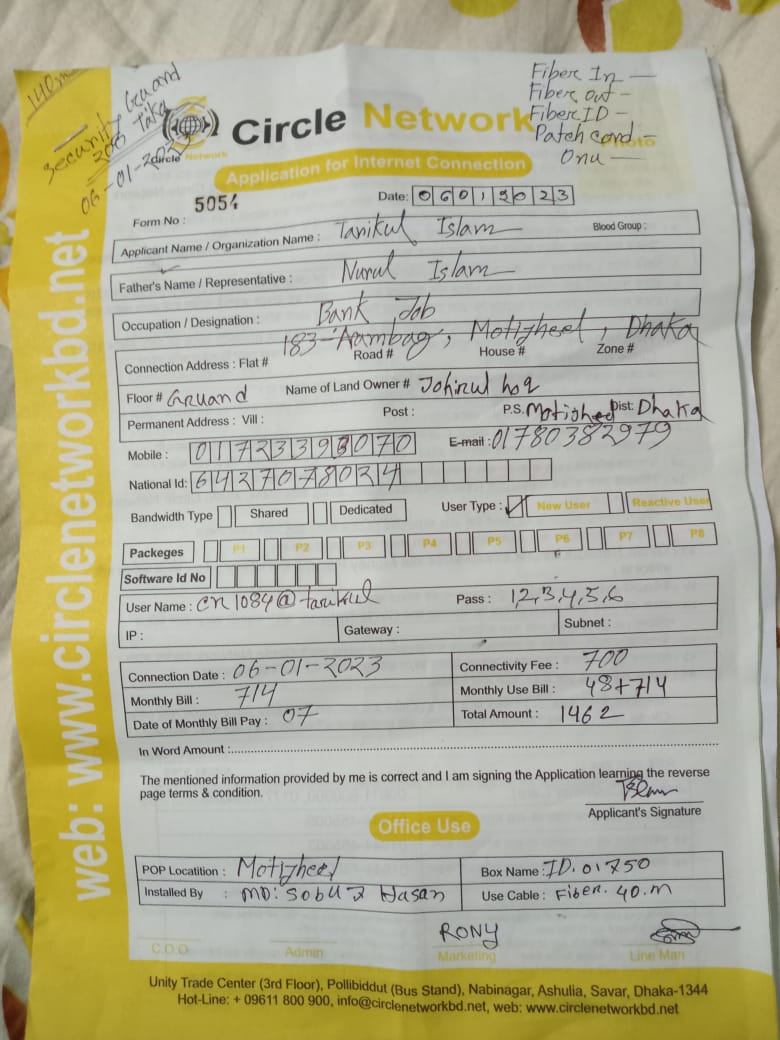 140m
Security Gruand
200 Taka
06-01-2023
Fiber In —
Fiber out -
Fiber ID -
Patch cord -
Onu —
Photo
Circle Network
Circle Network
Application for Internet Connection
Form No : 5054
Date: 06012023
Applicant Name / Organization Name : Tarikul Islam Blood Group :
Father's Name / Representative : Nurul Islam
Occupation / Designation : Bank Job
183-Arambag, Motijheel, Dhaka
Connection Address : Flat # Road # House # Zone #
Floor # Gruand Name of Land Owner # Johirul hoq
Permanent Address : Vill : Post : P.S. Motijheel Dist: Dhaka
Mobile : 01723393070 E-mail : 01780382979
National Id: 6427078024
Bandwidth Type Shared Dedicated User Type : ✓ New User Reactive User
Packeges P1 P2 P3 P4 P5 P6 P7 P8
Software Id No
User Name : cn1084@tarikul Pass : 1,2,3,4,5,6
IP : Gateway : Subnet :
Connection Date : 06-01-2023 Connectivity Fee : 700
Monthly Bill : 714 Monthly Use Bill : 48+714
Date of Monthly Bill Pay : 07 Total Amount : 1462
In Word Amount :
The mentioned information provided by me is correct and I am signing the Application learning the reverse
page terms & condition.
Applicant's Signature
Office Use
POP Locatition : Motijheel Box Name : ID. 01750
Installed By : MD: Sobuz Hasan Use Cable : Fiber. 40.m
RONY
C.O.O Admin Marketing Line Man
Unity Trade Center (3rd Floor), Pollibiddut (Bus Stand), Nabinagar, Ashulia, Savar, Dhaka-1344
Hot-Line: + 09611 800 900, info@circlenetworkbd.net, web: www.circlenetworkbd.net
web: www.circlenetworkbd.net